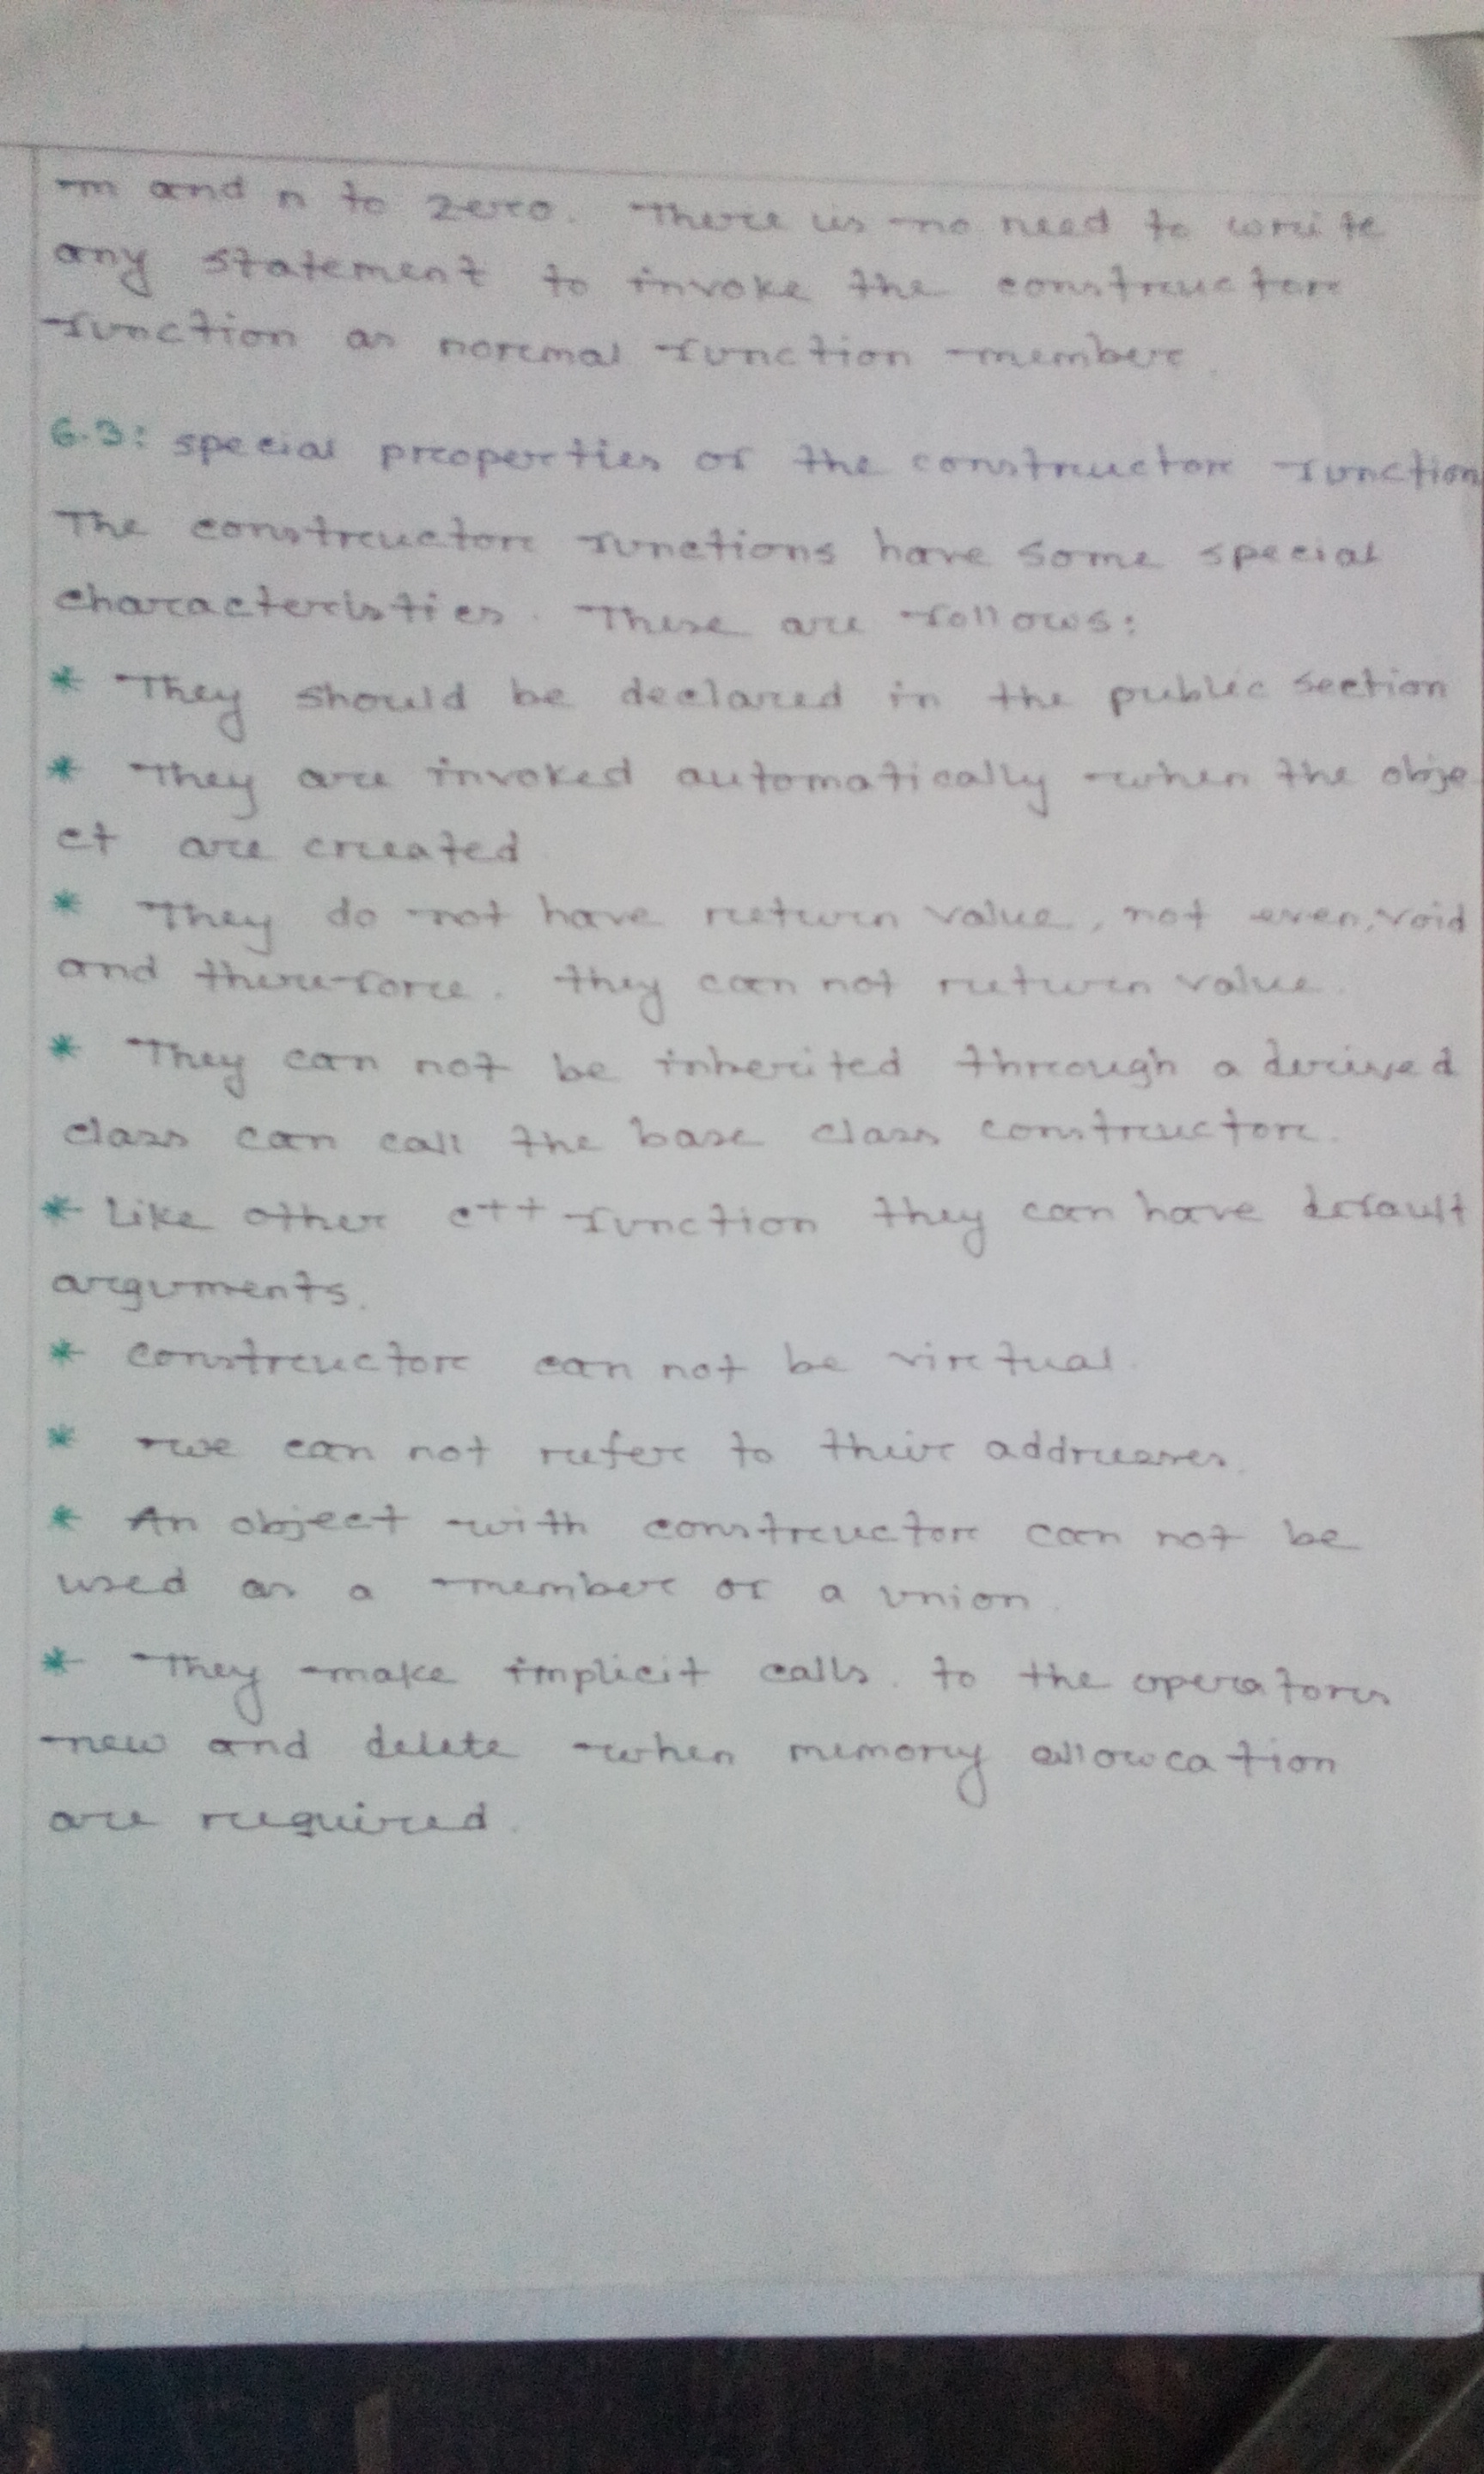 m and n to zero. There is no need to write
any statement to invoke the constructor
function as normal function member.
6.3: special properties of the constructor function
The constructor functions have some special
characteristics. These are follows:
* They should be declared in the public section
* They are invoked automatically when the obje
ct are created
* They do not have return value, not even, void
and therefore. they can not return value.
* They can not be inherited through a derived
class can call the base class constructor.
* Like other c++ function they can have default
arguments.
* constructor can not be virtual.
* we can not refer to their addresses.
* An object with constructor can not be
used as a member of a union.
* They make implicit calls. to the operators
new and delete when memory allowcation
are required.